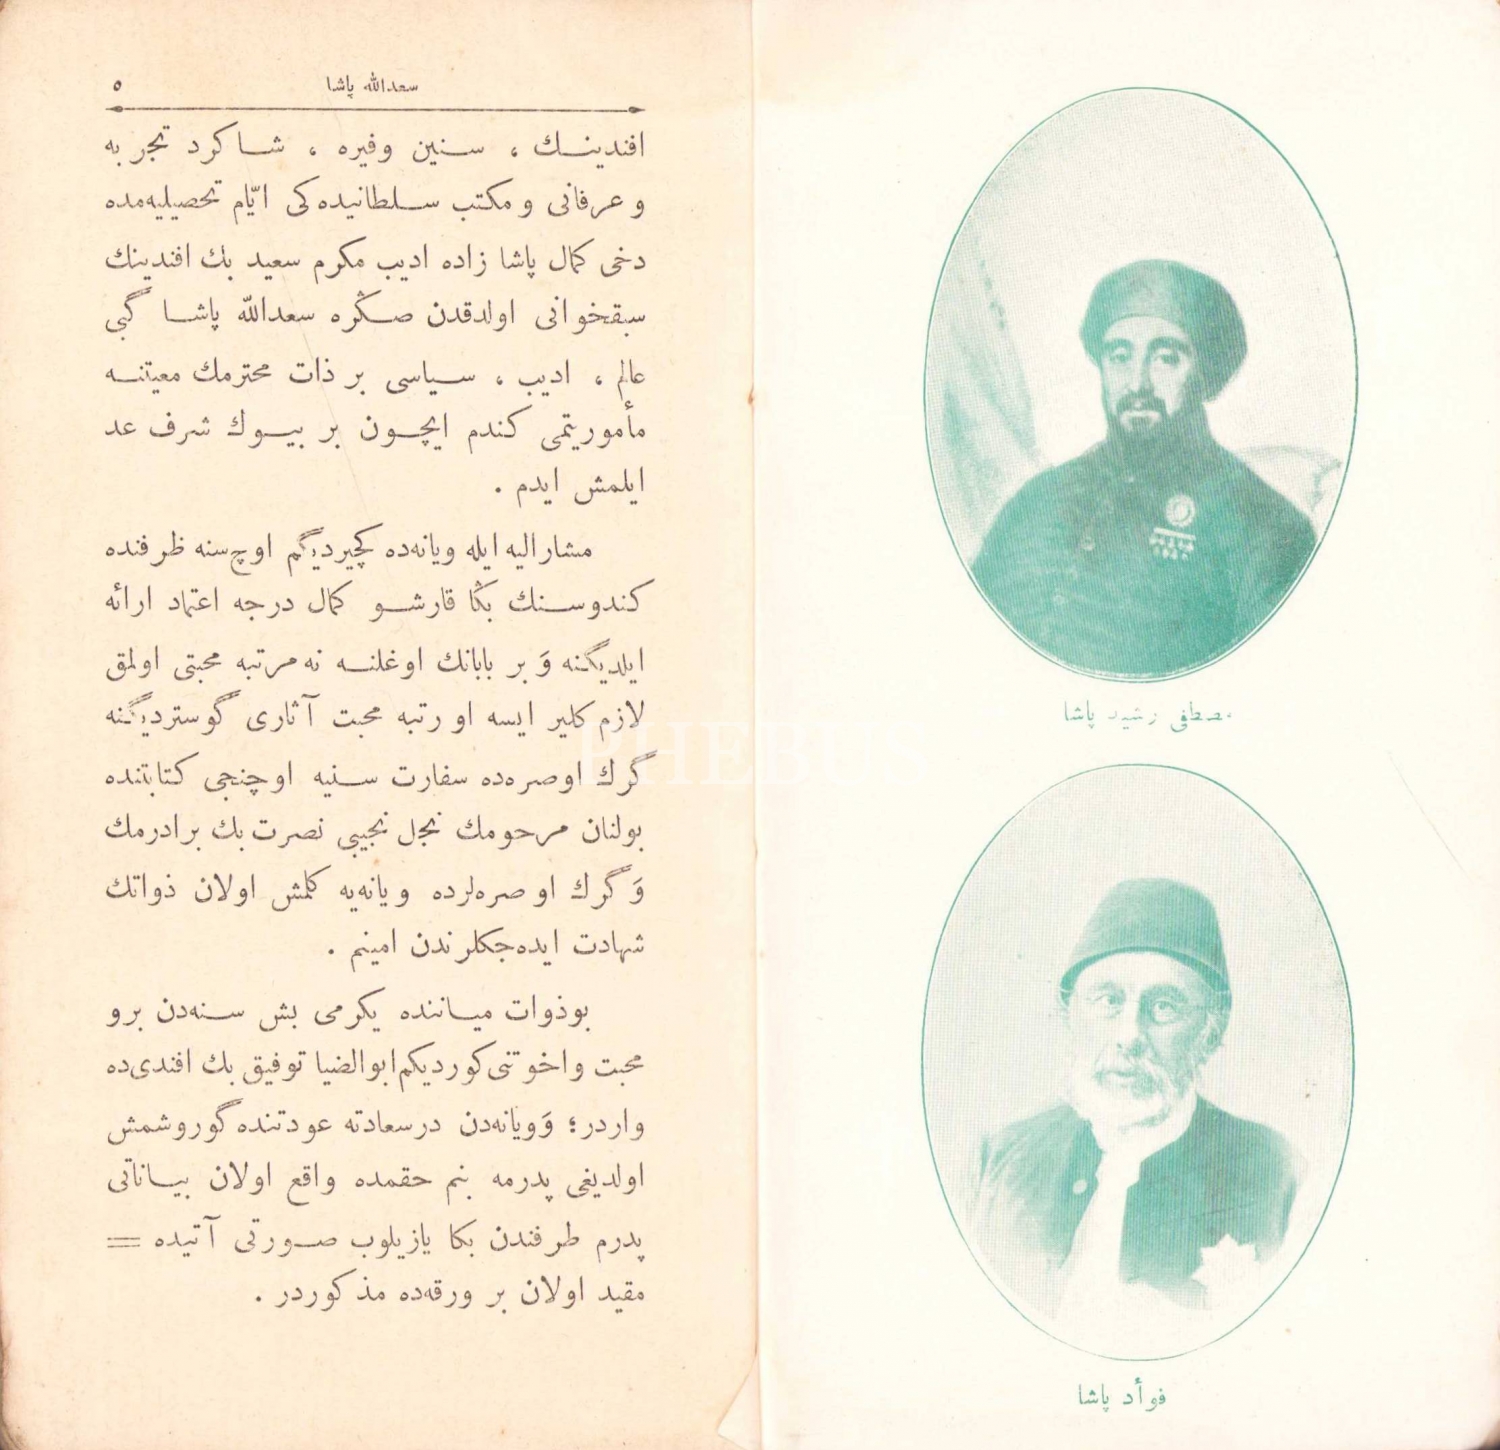 سعدالله پاشا
٥
افندینـك ، سـنین وفیره ، شـاكرد تجربه
و عرفانی و مكتب سـلطانیده كی ایّام تحصیلیه مده
دخی كمال پاشا زاده ادیب مكرم سعید بك افندینك
سبقخوانی اولدقدن صـڭره سعدالله پاشـا گبی
عالم ، ادیب ، سـیاسی بر ذات محترمك معیتنـه
مأموریتمی كندم ایچـون بر بیـوك شرف عد
ایلمش ایدم .
مشارالیه ایله ویانه ده كچیردیگم اوچ سنه ظرفنده
كندوسـنك بڭا قارشـو كمال درجه اعتماد ارائه
ایلدیگنه وَ بر بابانك اوغلنـه نه مرتبه محبتی اولمق
لازم كلیر ایسه او رتبه محبت آثاری گوستردیگنه
گرك اوصره ده سفارت سـنیه اوچنجی كتابتنده
بولنان مرحومك نجل نجیبی نصرت بك برادرمك
وَ گرك او صره لرده ویانه یه كلمش اولان ذواتك
شهادت ایده جكلرندن امینم .
بوذوات میـاننده یكرمی بش سـنه دن برو
محبت واخوتنی كوردیكم ابوالضیا توفیق بك افندی ده
واردر؛ وَویانه دن درسعادته عودتنده گوروشمش
اولدیغی پدرمه بنم حقمده واقع اولان بیـاناتی
پدرم طرفندن بكا یازیلوب صـورتی آتیده =
مقید اولان بر ورقه ده مذكوردر .
مصطفی رشید پاشا
فوأد پاشا
PHEBUS